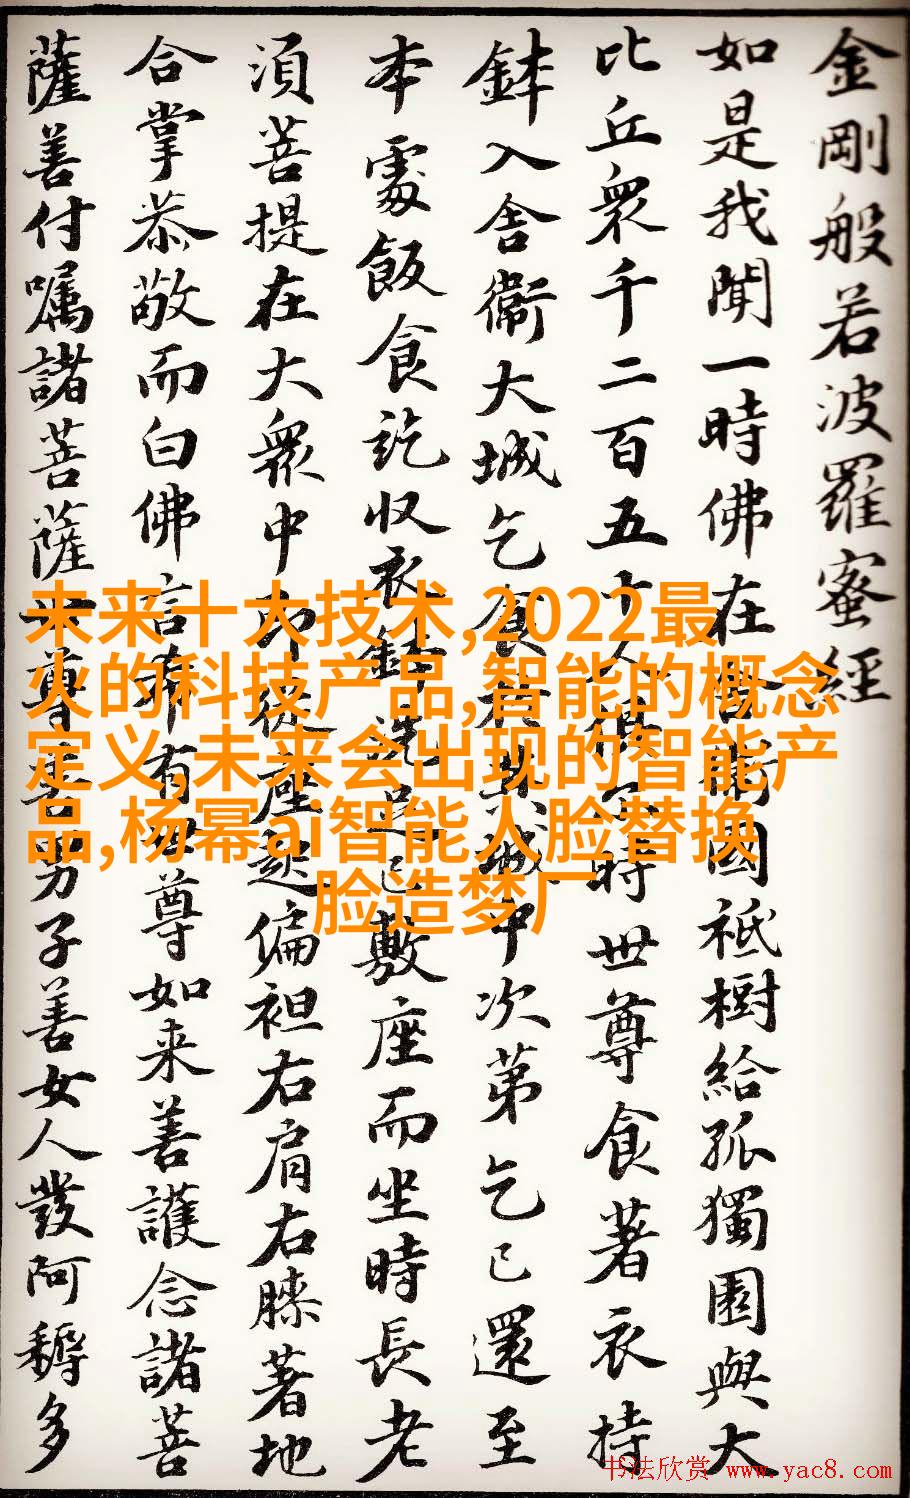 金剛般若波羅蜜經
如是我聞一時佛在舍衛國祇樹給孤獨園與大
比丘衆千二百五十人俱尒時世尊食著衣持
鉢入舍衛大城乞食於其城中次第乞已還至
本處飯食訖收衣鉢洗足已敷座而坐時長老
須菩提在大衆中即從座起偏袒右肩右膝著地
合掌恭敬而白佛言希有世尊如来善護念諸菩
薩善付嘱諸菩薩世尊善男子善女人發阿耨多
未来十大技术,2022最
火的科技产品,智能的概念
定义,未来会出现的智能产
品,杨幂ai智能人脸替换
脸造梦厂
书法欣赏 www.yac8.com